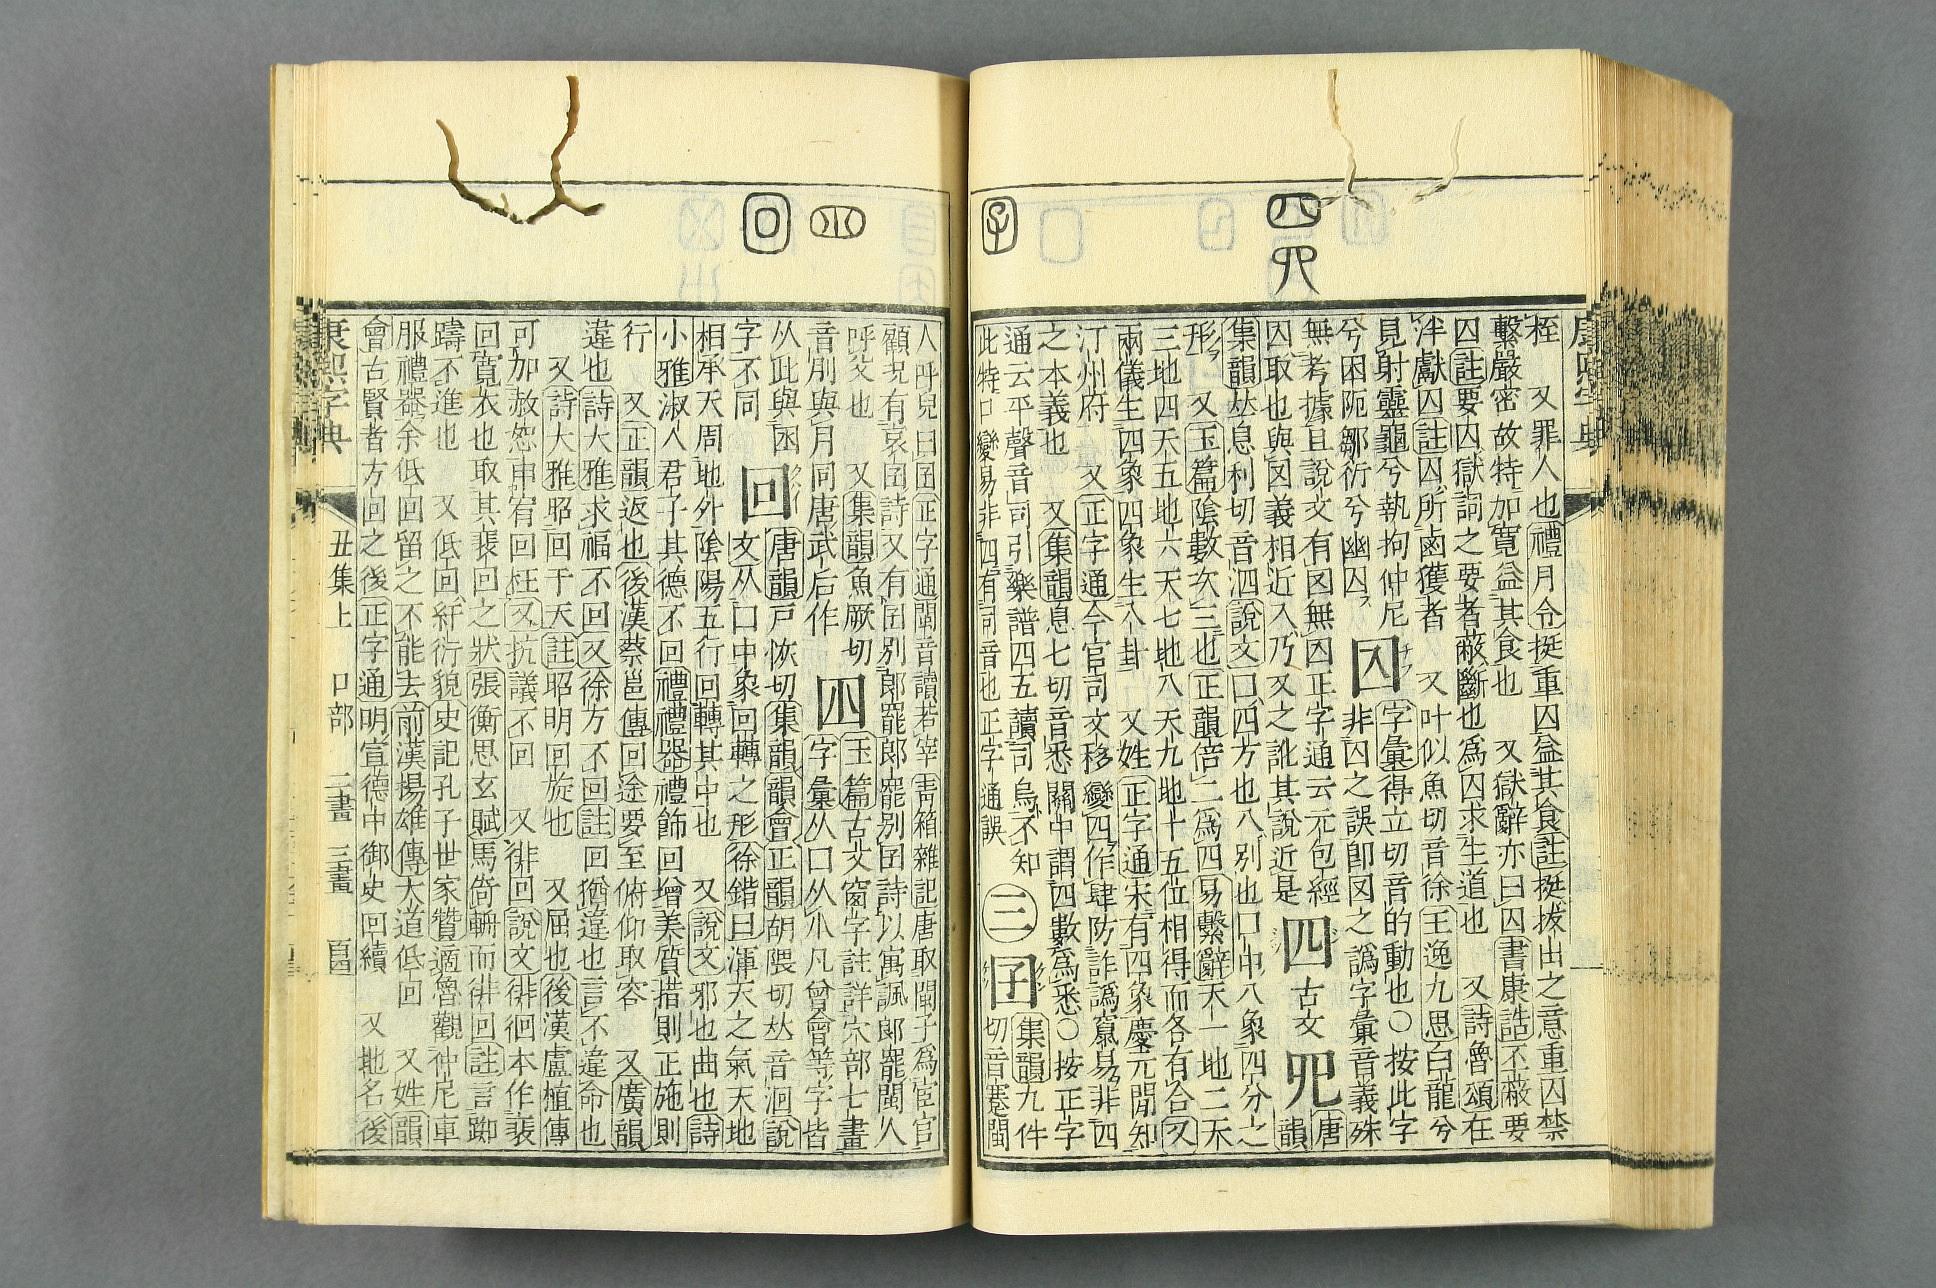 康熙字典
桎　又罪人也禮月令挺重囚益其食註挺拔出之意重囚禁
繫嚴密故特加寬益其食也　又獄辭亦曰囚書康誥丕蔽要
囚註要囚獄詞之要者蔽斷也爲囚求生道也　又詩魯頌在
泮獻囚註囚所鹵獲者　又叶似魚切音徐王逸九思白龍兮
見射靈龜兮執拘仲尼
兮困阨鄒衍兮幽囚
字彙得立切音的動也○按此字
非囚之誤卽㘝之譌字彙音義殊
無考據且說文有㘝無囚正字通云元包經
㘝取也與㘝義相近入乃又之訛其說近是
四　古文　𦉭　唐韻
集韻𠀤息利切音泗說文囗四方也八別也囗中八象四分之
形　又玉篇陰數次三也正韻倍二爲四易繫辭天一地二天
三地四天五地六天七地八天九地十五位相得而各有合又
兩儀生四象四象生八卦　又姓正字通宋有四象慶元閒知
汀州府　又正字通今官司文移變四作肆防詐譌竄易非四
之本義也　又集韻息七切音悉關中謂四數爲悉○按正字
通云平聲音司引樂譜四五讀司烏不知
此特口變易非四有司音也正字通誤
三
囝　集韻九件
切音蹇閩
人呼兒曰囝正字通閩音讀若宰靑箱雜記唐取閩子爲宦官
顧況有哀囝詩又有囝別郞罷郞罷別囝詩以寓諷郞罷閩人
呼父也　又集韻魚厥切
音別與月同唐武后作
𡆫　玉篇古文窗字註詳穴部七畫
字彙从口从小凡曾會等字皆
从此與囪
字不同
回　唐韻戸恢切集韻韻會正韻胡隈切𠀤音洄說
文从囗中象回轉之形徐鍇曰渾天之氣天地
相承天周地外陰陽五行回轉其中也　又說文邪也曲也詩
小雅淑人君子其德不回禮禮器禮飾回增美質措則正施則
行　又正韻返也後漢蔡邕傳回途要至俯仰取容　又廣韻
違也詩大雅求福不回又徐方不回註回猶違也言不違命也
又詩大雅昭回于天註昭明回旋也　又屈也後漢盧植傳
可加赦恕申宥回枉又抗議不回　又徘回說文徘徊本作裴
回寬衣也取其裴回之狀張衡思玄賦馬倚輈而徘回註言踟
躊不進也　又低回紆衍貌史記孔子世家贊適魯觀仲尼車
服禮器余低回留之不能去前漢揚雄傳大道低回　又姓韻
會古賢者方回之後正字通明宣德中御史回續　又地名後
康熙字典　丑集上　口部　二畫　三畫